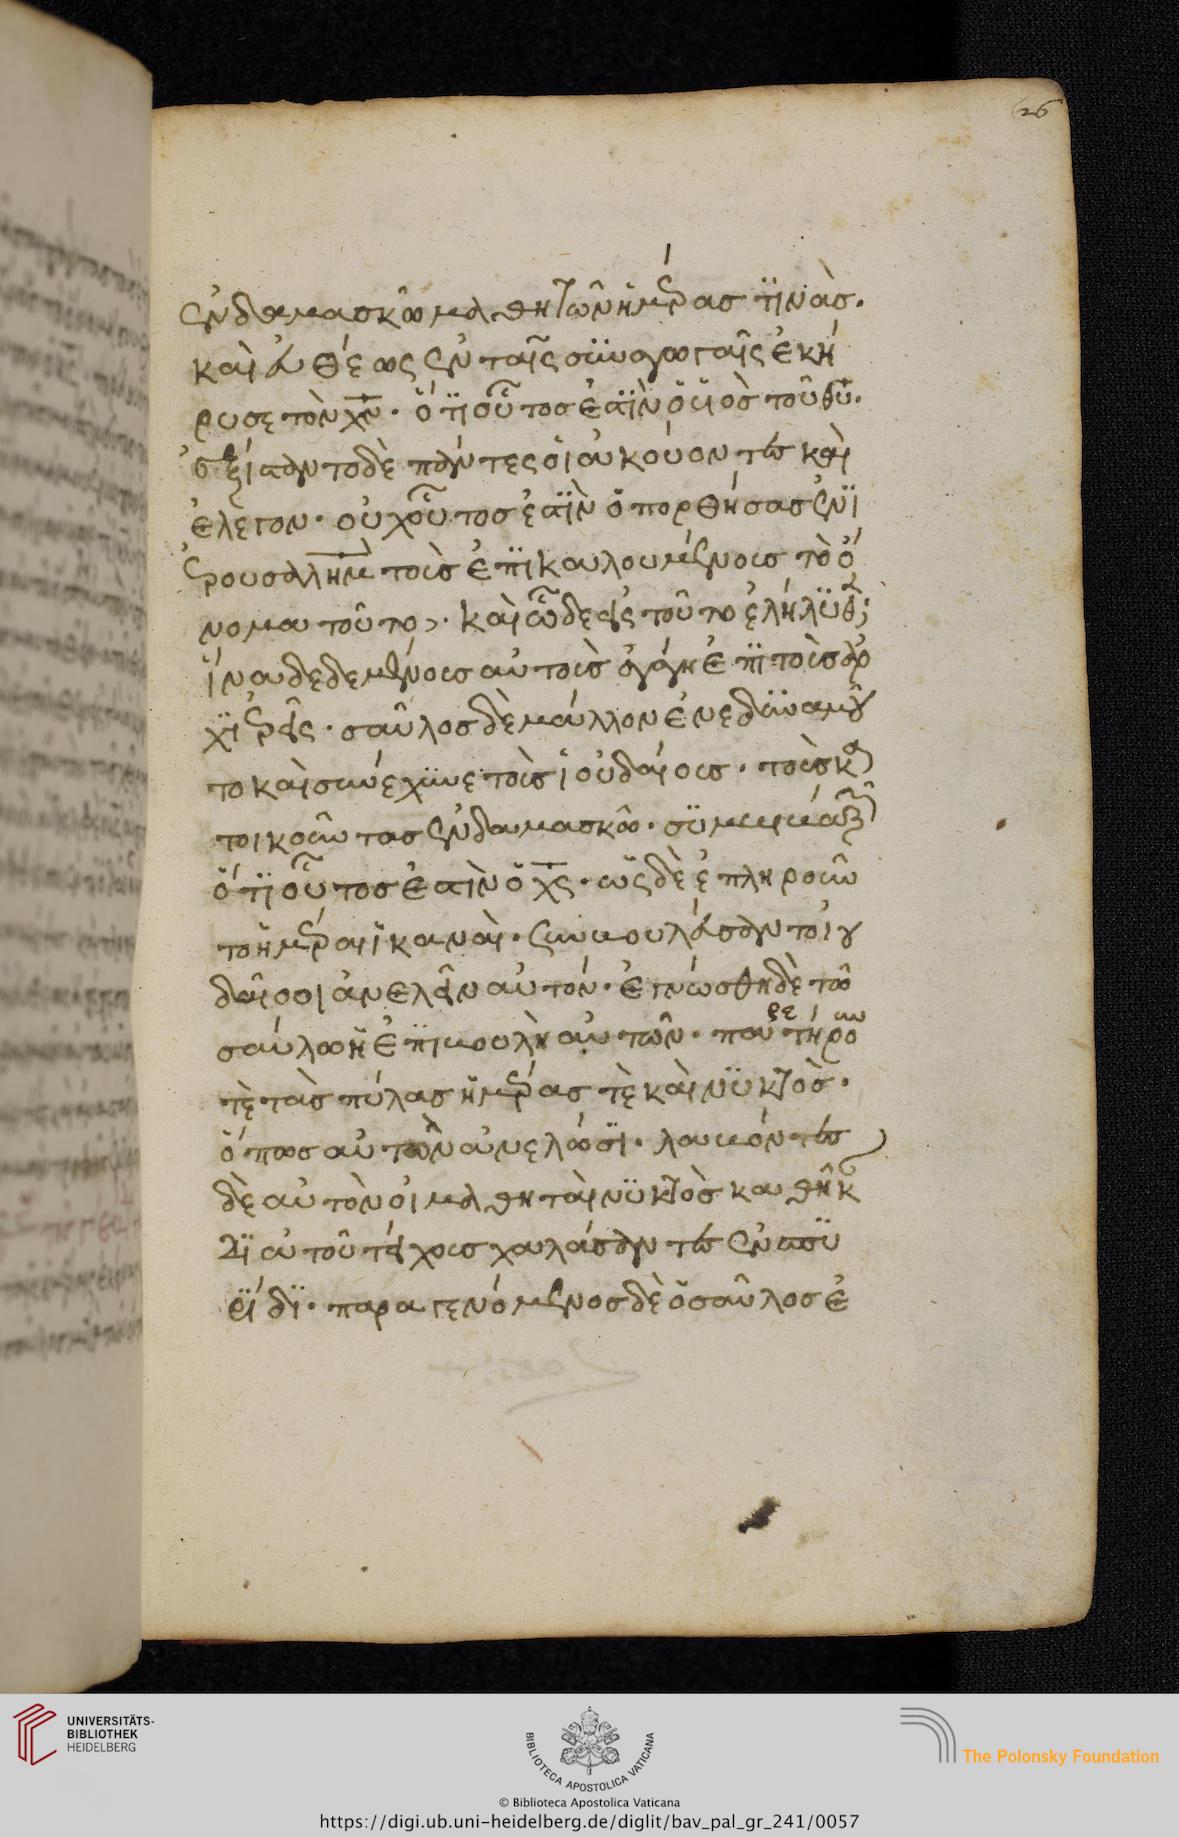 26
ἐν δαμασκῶ μαθητῶν ἡμέρας τϊνὰς.
καὶ εὐθέως ἐν ταῖς συναγωγαῖς ἐκή
ρυσε τὸν χν· ὅτϊ οὗτος ἐστϊν ὁ υἱὸς τοῦ θυ.
ἐξίσταντο δὲ πάντες οἱ ἀκούοντες καὶ
ἔλεγον· οὐχ οὗτος ἐστϊν ὁ πορθήσας ἐν ϊ
ερουσαλὴμ τοὶς ἐπϊκαλουμένοις τὸ ὄ
νομα τοῦτο· καὶ ὧδε εἰς τοῦτο ἐλήλϋθει;
ἵνα δεδεμένους αὐτοὶς ἀγάγη ἐπϊ τοὶς ἀρ
χϊερεῖς· σαῦλος δὲ μάλλον ἐνεδϋναμοῦ
το καὶ συνέχϋνε τοὶς ἰουδαίοις· τοὶς κα
τοικοῦντας ἐν δαμασκῶ· σϋμβιβάζων
ὅτϊ οὗτος ἐστϊν ὁ χς· ὡς δὲ ἐπληροῦν
το ἡμέραι ἱκαναὶ· συνεβουλεύσαντο ἰου
δαῖοι ἀνελεῖν αὐτόν· ἐγνώσθη δὲ τῶ
σαύλω ἡ ἐπϊβουλὴ αὐτῶν· παρετήρουν
τὲ τὰς πύλας ἡμέρας τὲ καὶ νϋκτὸς·
ὅπως αὐτὸν ἀνελῶσϊ· λαβόντες
δὲ αὐτὸν οἱ μαθηταὶ νϋκτὸς καθῆκαν
δϊὰ τοῦ τείχους χαλάσαντες ἐν σπϋ
ρϊδϊ· παραγενόμενος δὲ ὁ σαῦλος ἐ
UNIVERSITÄTS-
BIBLIOTHEK
HEIDELBERG
BIBLIOTECA APOSTOLICA VATICANA
The Polonsky Foundation
© Biblioteca Apostolica Vaticana
https://digi.ub.uni-heidelberg.de/diglit/bav_pal_gr_241/0057